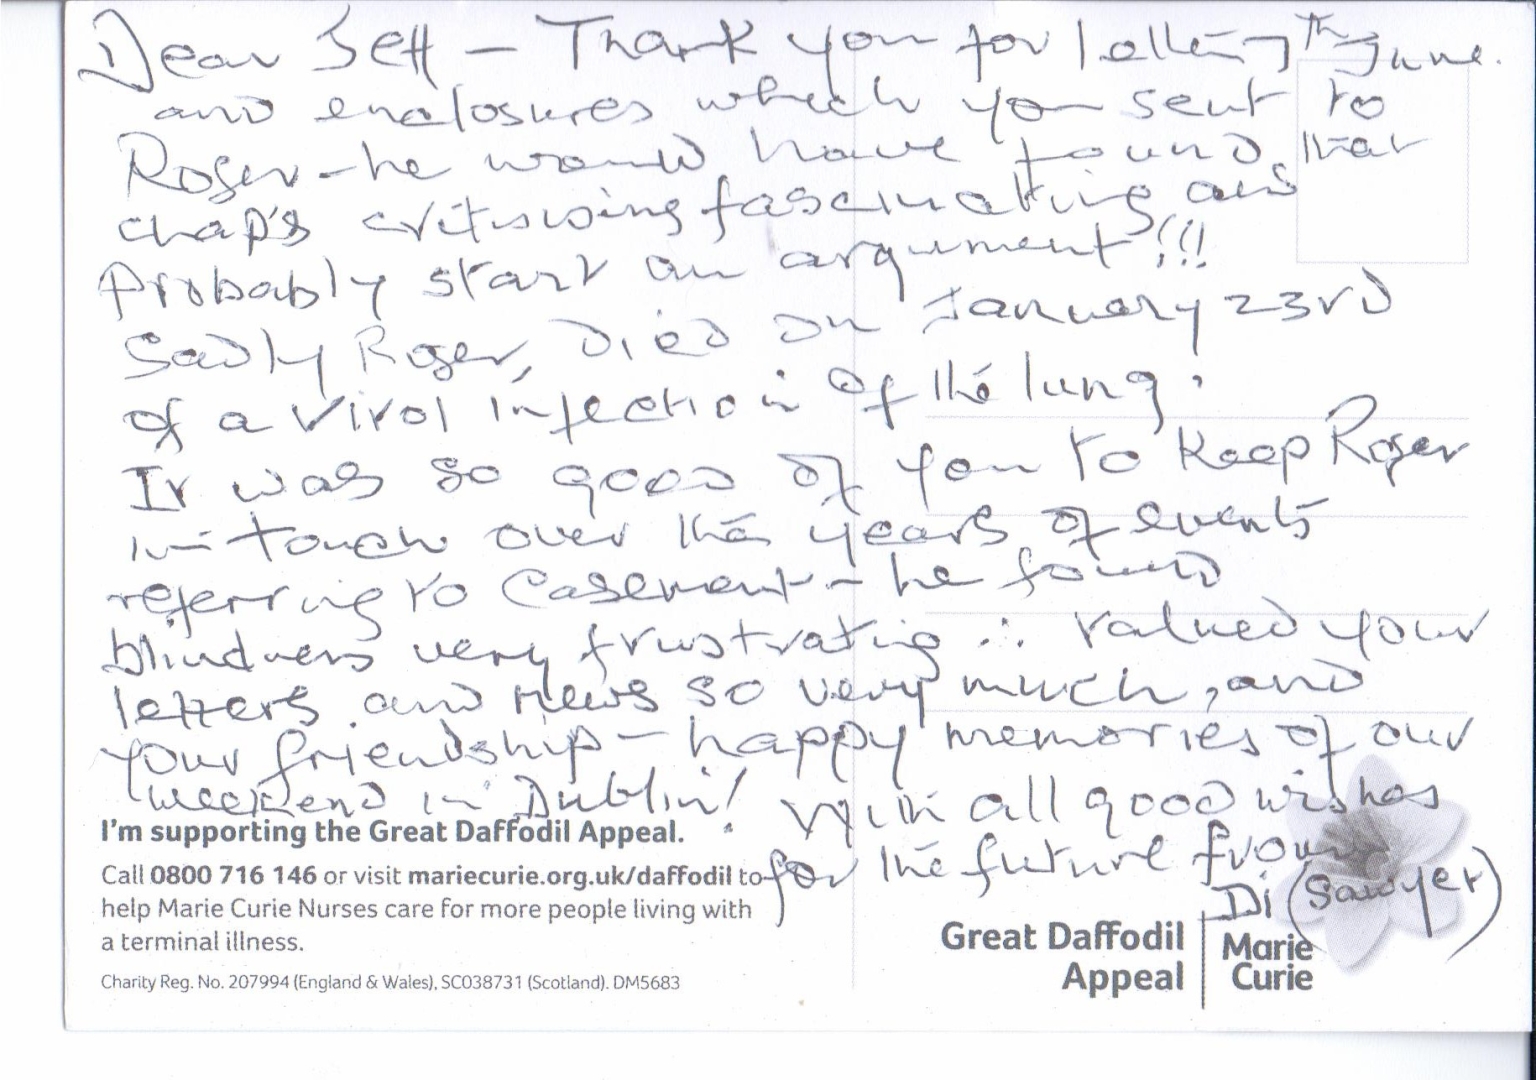 Dear Jeff - Thank you for letter 7th June.
and enclosures which you sent to
Roger - he would have found that
chap's critisising fascinating and
probably start an argument!!!
Sadly Roger, died on January 23rd
of a viral infection of the lung.
It was so good of you to keep Roger
in touch over the years of events
referring to Casement - he found
blindness very frustrating ∴ valued your
letters and news so very much, and
your friendship - happy memories of our
weekend in Dublin! With all good wishes
for the future from
Di (Sawyer)
I'm supporting the Great Daffodil Appeal.
Call 0800 716 146 or visit mariecurie.org.uk/daffodil to
help Marie Curie Nurses care for more people living with
a terminal illness.
Charity Reg. No. 207994 (England & Wales), SC038731 (Scotland). DM5683
Great Daffodil
Appeal
Marie
Curie